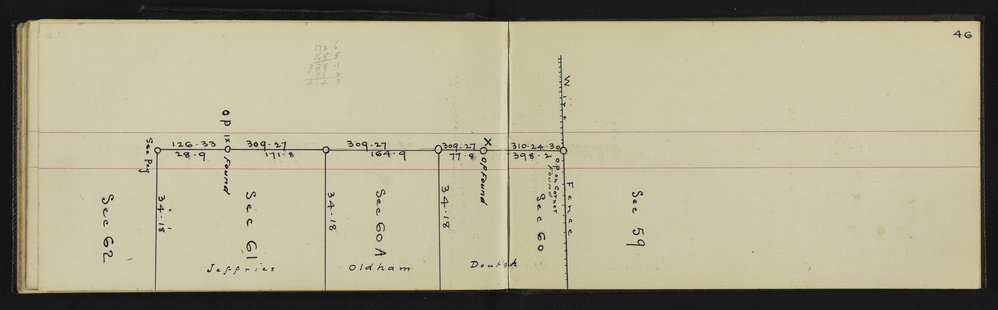 46
172.6
Wire Fence
OP IX Found
X OP Found
See Peg
126.33
309.27
309.27
309.27
310.24.30
28.9
171.8
164.9
77.8
398.2
OP on Corner Found
34.18
34.18
34.18
Sec 62
Sec 61
Sec 60A
Sec 60
Sec 59
Jeffries
Oldham